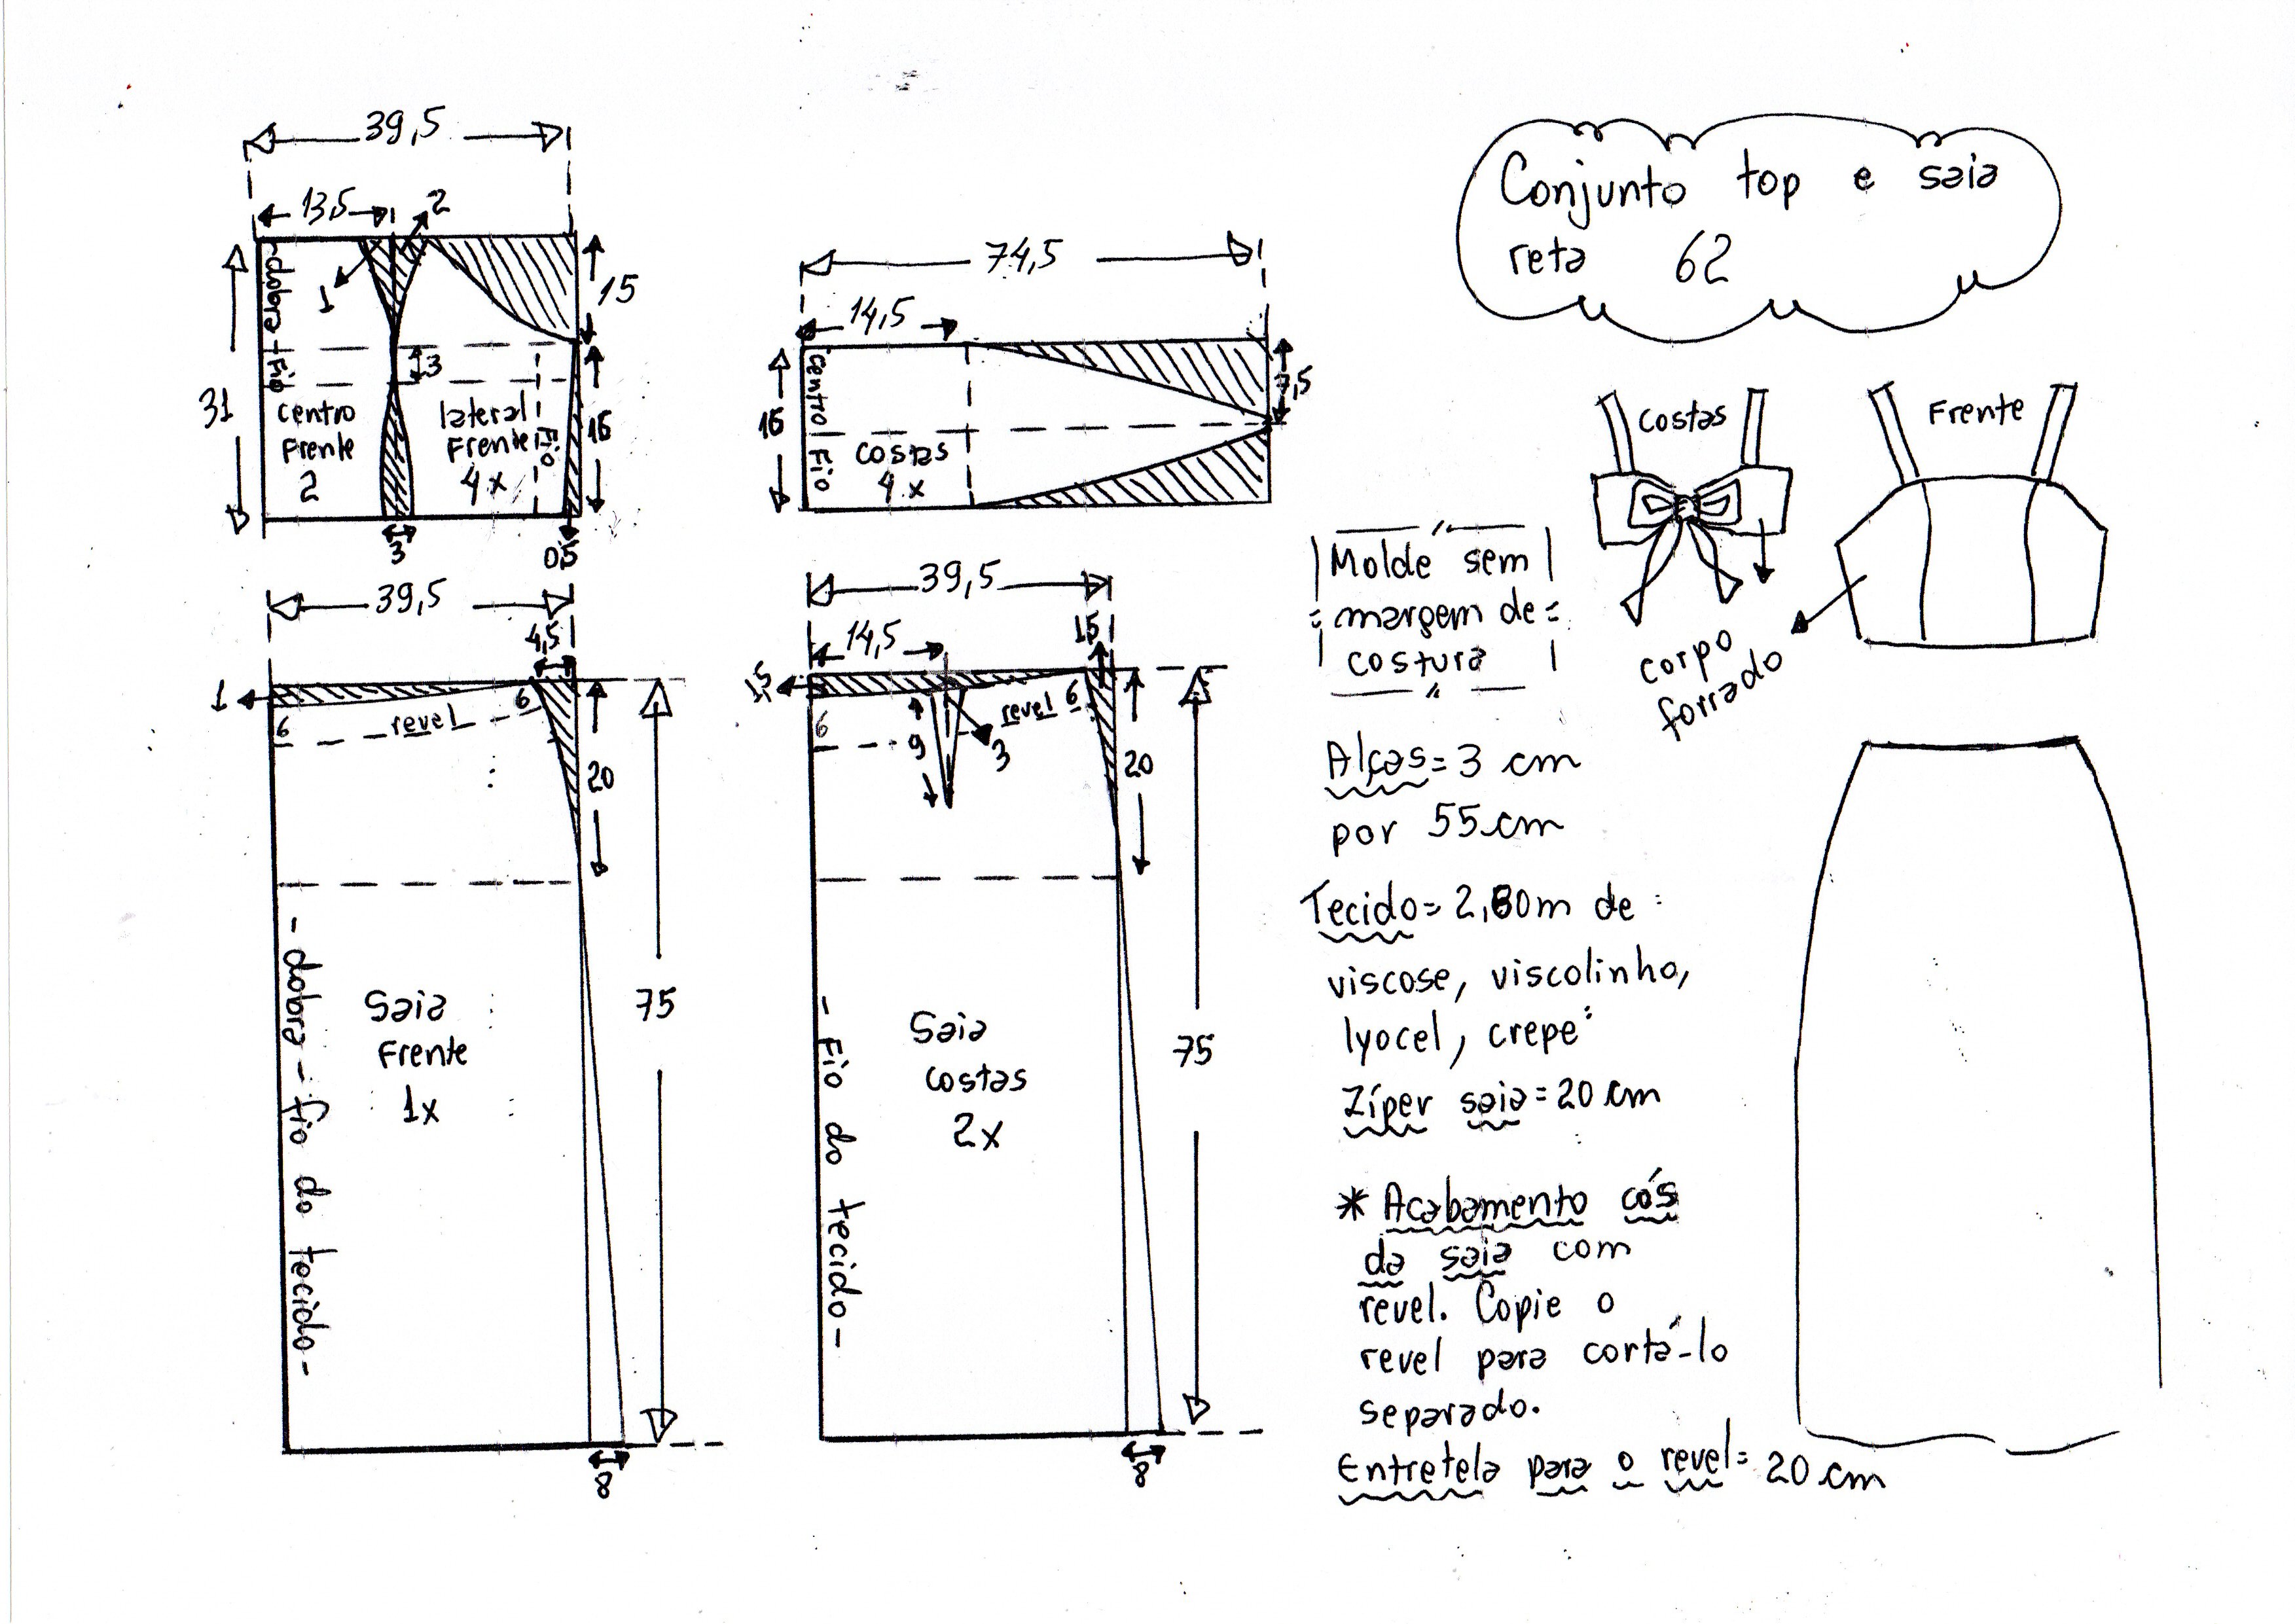 Conjunto top e saia
reta 62
39,5
13,5
2
1
15
31
3
dobra - fio
centro
Frente
2
lateral
Frente
4x
Fio
16
3
0,5
74,5
14,5
7,5
16
centro
Fio
costas
4x
39,5
4,5
1
6
6
revel
20
75
Saia
Frente
1x
- dobra - fio do tecido -
8
39,5
14,5
1,5
1,5
6
9
3
revel 6
20
75
Saia
costas
2x
- Fio do tecido -
8
Costas
Frente
corpo
forrado
Molde sem
margem de
costura
Alças = 3 cm
por 55 cm
Tecido = 2,60m de
viscose, viscolinho,
lyocel, crepe
Zíper saia = 20 cm
* Acabamento cós
da saia com
revel. Copie o
revel para cortá-lo
separado.
Entretela para o revel = 20 cm